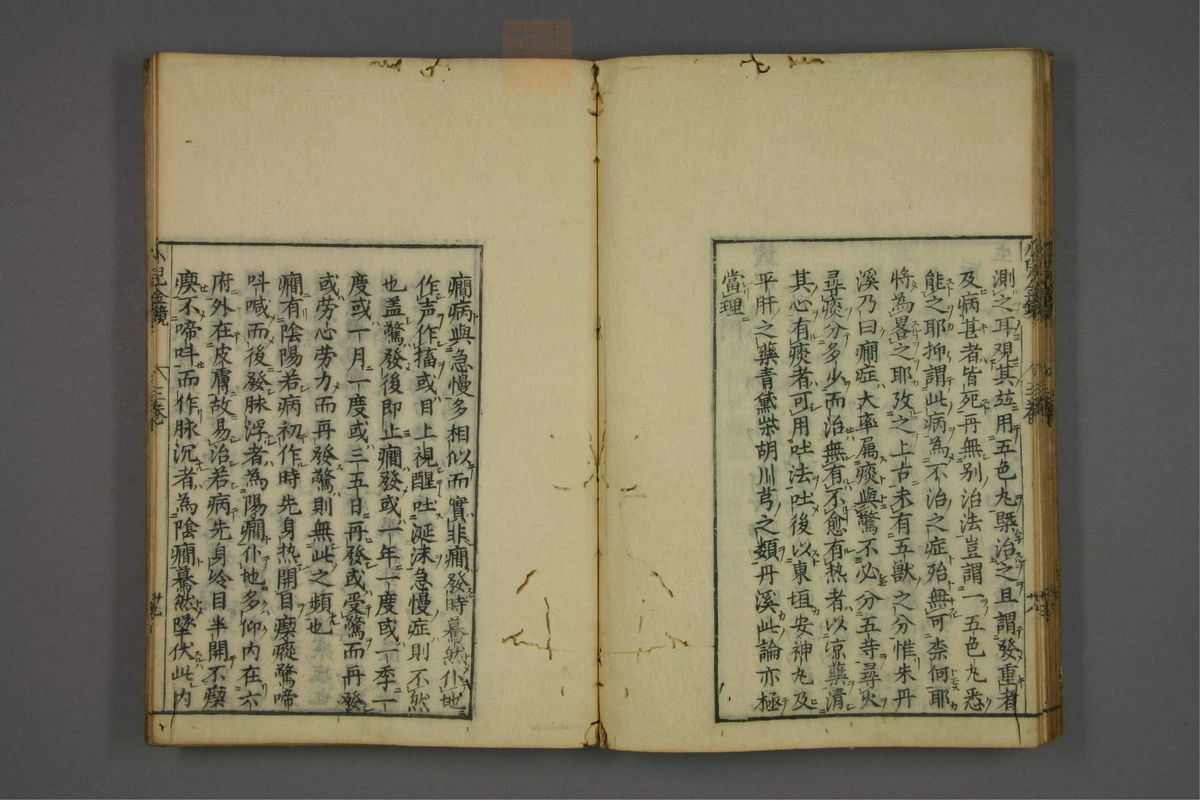 測之耳观其玆用五色丸槩治之且謂發重者
及病甚者皆死再無别治法豈謂一五色丸悉
能之耶抑謂此病為不治之症殆無可柰何耶
將為畧之耶攷之上古未有五獸之分惟朱丹
溪乃曰癇症大率属痰與驚不必分五等尋火
尋痰分多少而治無有不愈有热者以凉藥清
其心有痰者可用吐法吐後以東垣安神丸及
平肝之藥青黛柴胡川芎之類丹溪此論亦極
當理
癇病與急慢多相似而實非癇發時驀然仆地
作声作搐或目上視醒吐涎沫急慢症則不然
也盖驚發後即止癇發或一年一度或一季一
度或一月一度或三五日再發或受驚而再發
或劳心劳力而再發驚則無此之頻也
癇有陰陽若病初作時先身热開目瘈瘲驚啼
呌喊而後發脉浮者為陽癇仆地多仰内在六
府外在皮膚故易治若病先身冷目半開不瘈
瘲不啼呌而作脉沉者為陰癇驀然墜伏此内
小兒金鏡
三巻